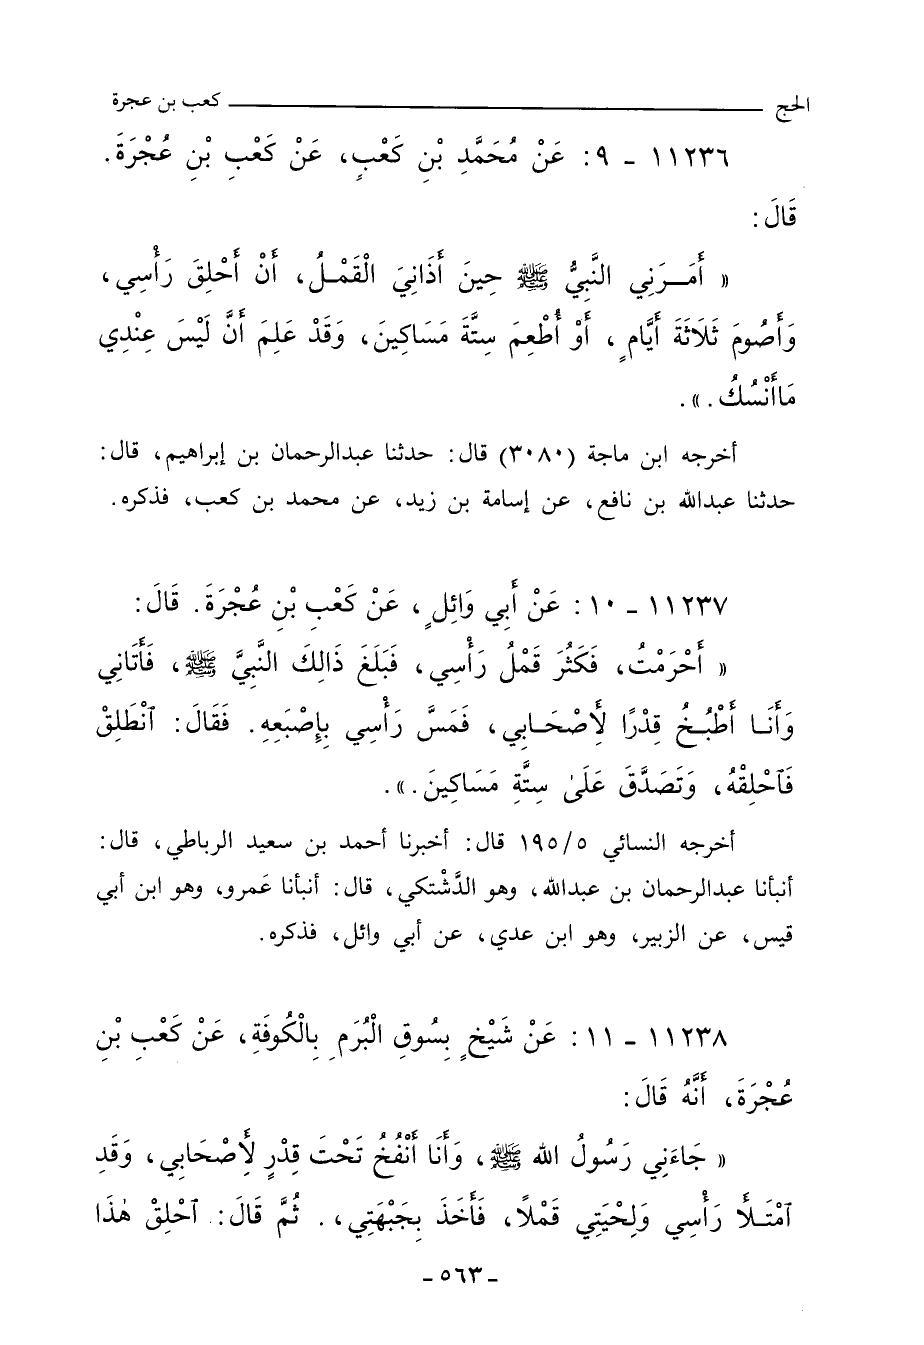 الحج ــــــــــ كعب بن عجرة
١١٢٣٦ - ٩: عَنْ مُحَمَّدِ بْنِ كَعْبٍ، عَنْ كَعْبِ بْنِ عُجْرَةَ.
قَالَ:
« أَمَـرَنِي النَّبِيُّ ﷺ حِينَ أَذَانِيَ الْقَمْـلُ، أَنْ أَحْلِقَ رَأْسِي،
وَأَصُومَ ثَلَاثَةَ أَيَّامٍ، أَوْ أُطْعِمَ سِتَّةَ مَسَاكِينَ، وَقَدْ عَلِمَ أَنَّ لَيْسَ عِنْدِي
مَاأَنْسُكُ. ».
أخرجه ابن ماجة (٣٠٨٠) قال: حدثنا عبدالرحمان بن إبراهيم، قال:
حدثنا عبدالله بن نافع، عن إسامة بن زيد، عن محمد بن كعب، فذكره.
١١٢٣٧ - ١٠: عَنْ أَبِي وَائِلٍ، عَنْ كَعْبِ بْنِ عُجْرَةَ. قَالَ:
« أَحْرَمْتُ، فَكَثُرَ قَمْلُ رَأْسِي، فَبَلَغَ ذَالِكَ النَّبِيَّ ﷺ، فَأَتَانِي
وَأَنَـا أَطْبُـخُ قِدْرًا لِأَصْحَـابِي، فَمَسَّ رَأْسِي بِإِصْبَعِهِ. فَقَالَ: ٱنْطَلِقْ
فَٱحْلِقْهُ، وَتَصَدَّقَ عَلَىٰ سِتَّةِ مَسَاكِينَ. ».
أخرجه النسائي ١٩٥/٥ قال: أخبرنا أحمد بن سعيد الرباطي، قال:
أنبأنا عبدالرحمان بن عبدالله، وهو الدَّشْتكي، قال: أنبأنا عَمرو، وهو ابن أبي
قيس، عن الزبير، وهو ابن عدي، عن أبي وائل، فذكره.
١١٢٣٨ - ١١: عَنْ شَيْخٍ بِسُوقِ الْبُرَمِ بِالْكُوفَةِ، عَنْ كَعْبِ بْنِ
عُجْرَةَ، أَنَّهُ قَالَ:
« جَاءَنِي رَسُولُ الله ﷺ، وَأَنَا أَنْفُخُ تَحْتَ قِدْرٍ لِأَصْحَابِي، وَقَدِ
ٱمْتَـلَأَ رَأْسِي وَلِحْيَتِي قَمْلًا، فَأَخَذَ بِجَبْهَتِي،. ثُمَّ قَالَ: ٱحْلِقْ هٰذَا
- ٥٦٣ -